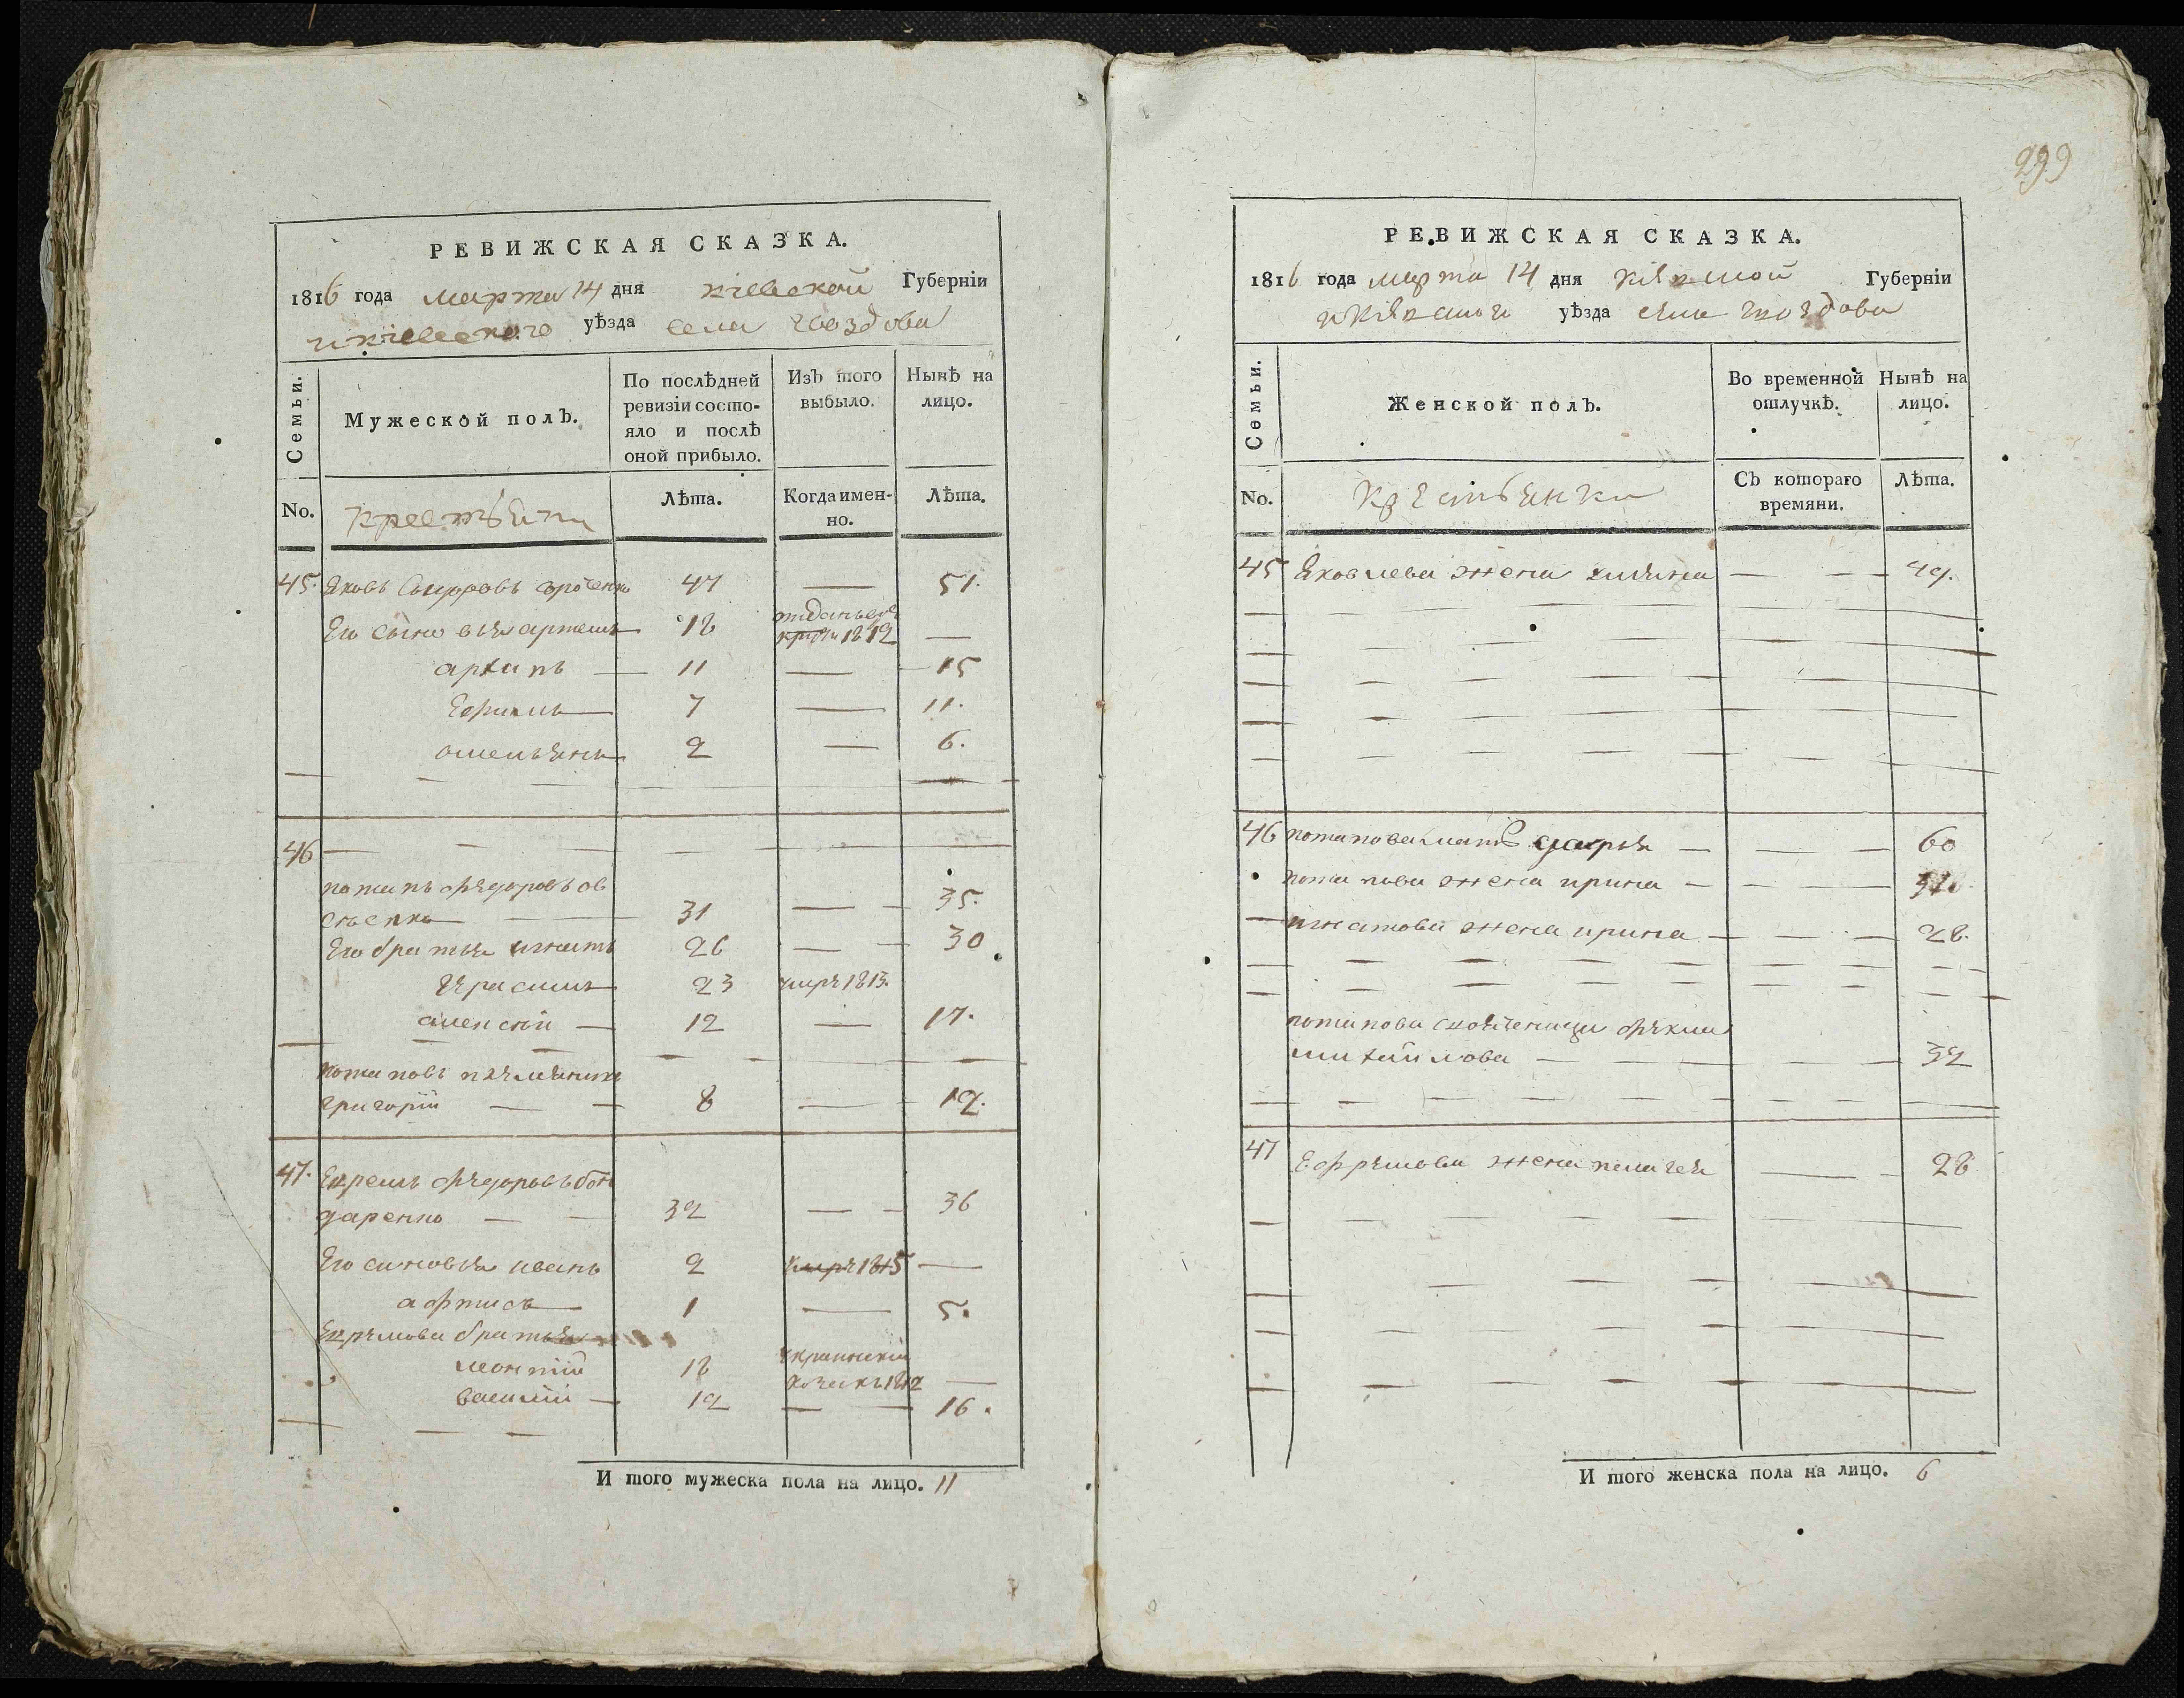 299
РЕВИЖСКАЯ СКАЗКА.
1816 года марта 14 дня кіевской Губерніи
и кіевского уѣзда села гвоздова
Семьи.
Мужеской полъ.
По послѣдней ревизіи состояло и послѣ оной прибыло.
Изъ того выбыло.
Нынѣ на лицо.
No.
крестьяни
Лѣта.
Когда именно.
Лѣта.
45. Яковъ 47 — 51.
Его сыновья артемъ 18 1812 —
архипъ — 11 — 15
Ефимъ 7 — 11.
омельянъ 2 — 6.
46
потапъ федоровъ ов
сіенко — 31 — 35.
Его братья игнатъ 26 — 30
Герасимъ 23 умре 1813.
алексѣй — 12 — 17.
потаповъ племяникъ
григорій — 8 — 12.
47. Ефремъ федоровъ бон
даренко — 32 — 36
Его синовья иванъ 2 умре 1815 —
афтисъ 1 — 5.
Ефремова братья
леонтій 18 1812 —
василій — 12 — 16.
И того мужеска пола на лицо. 11
РЕВИЖСКАЯ СКАЗКА.
1816 года марта 14 дня кіевской Губерніи
и кіевского уѣзда села гвоздова
Семьи.
Женской полъ.
Во временной отлучкѣ.
Нынѣ на лицо.
No.
Крестьянки
Съ котораго времяни.
Лѣта.
45 Яковлева жена — 49.
46 потапова мать дарья — 60
потапова жена ирина —
игнатова жена ирина — 28.
потапова фекла
михайлова — 32
47 Ефремова жена пелагея — 28
И того женска пола на лицо. 6